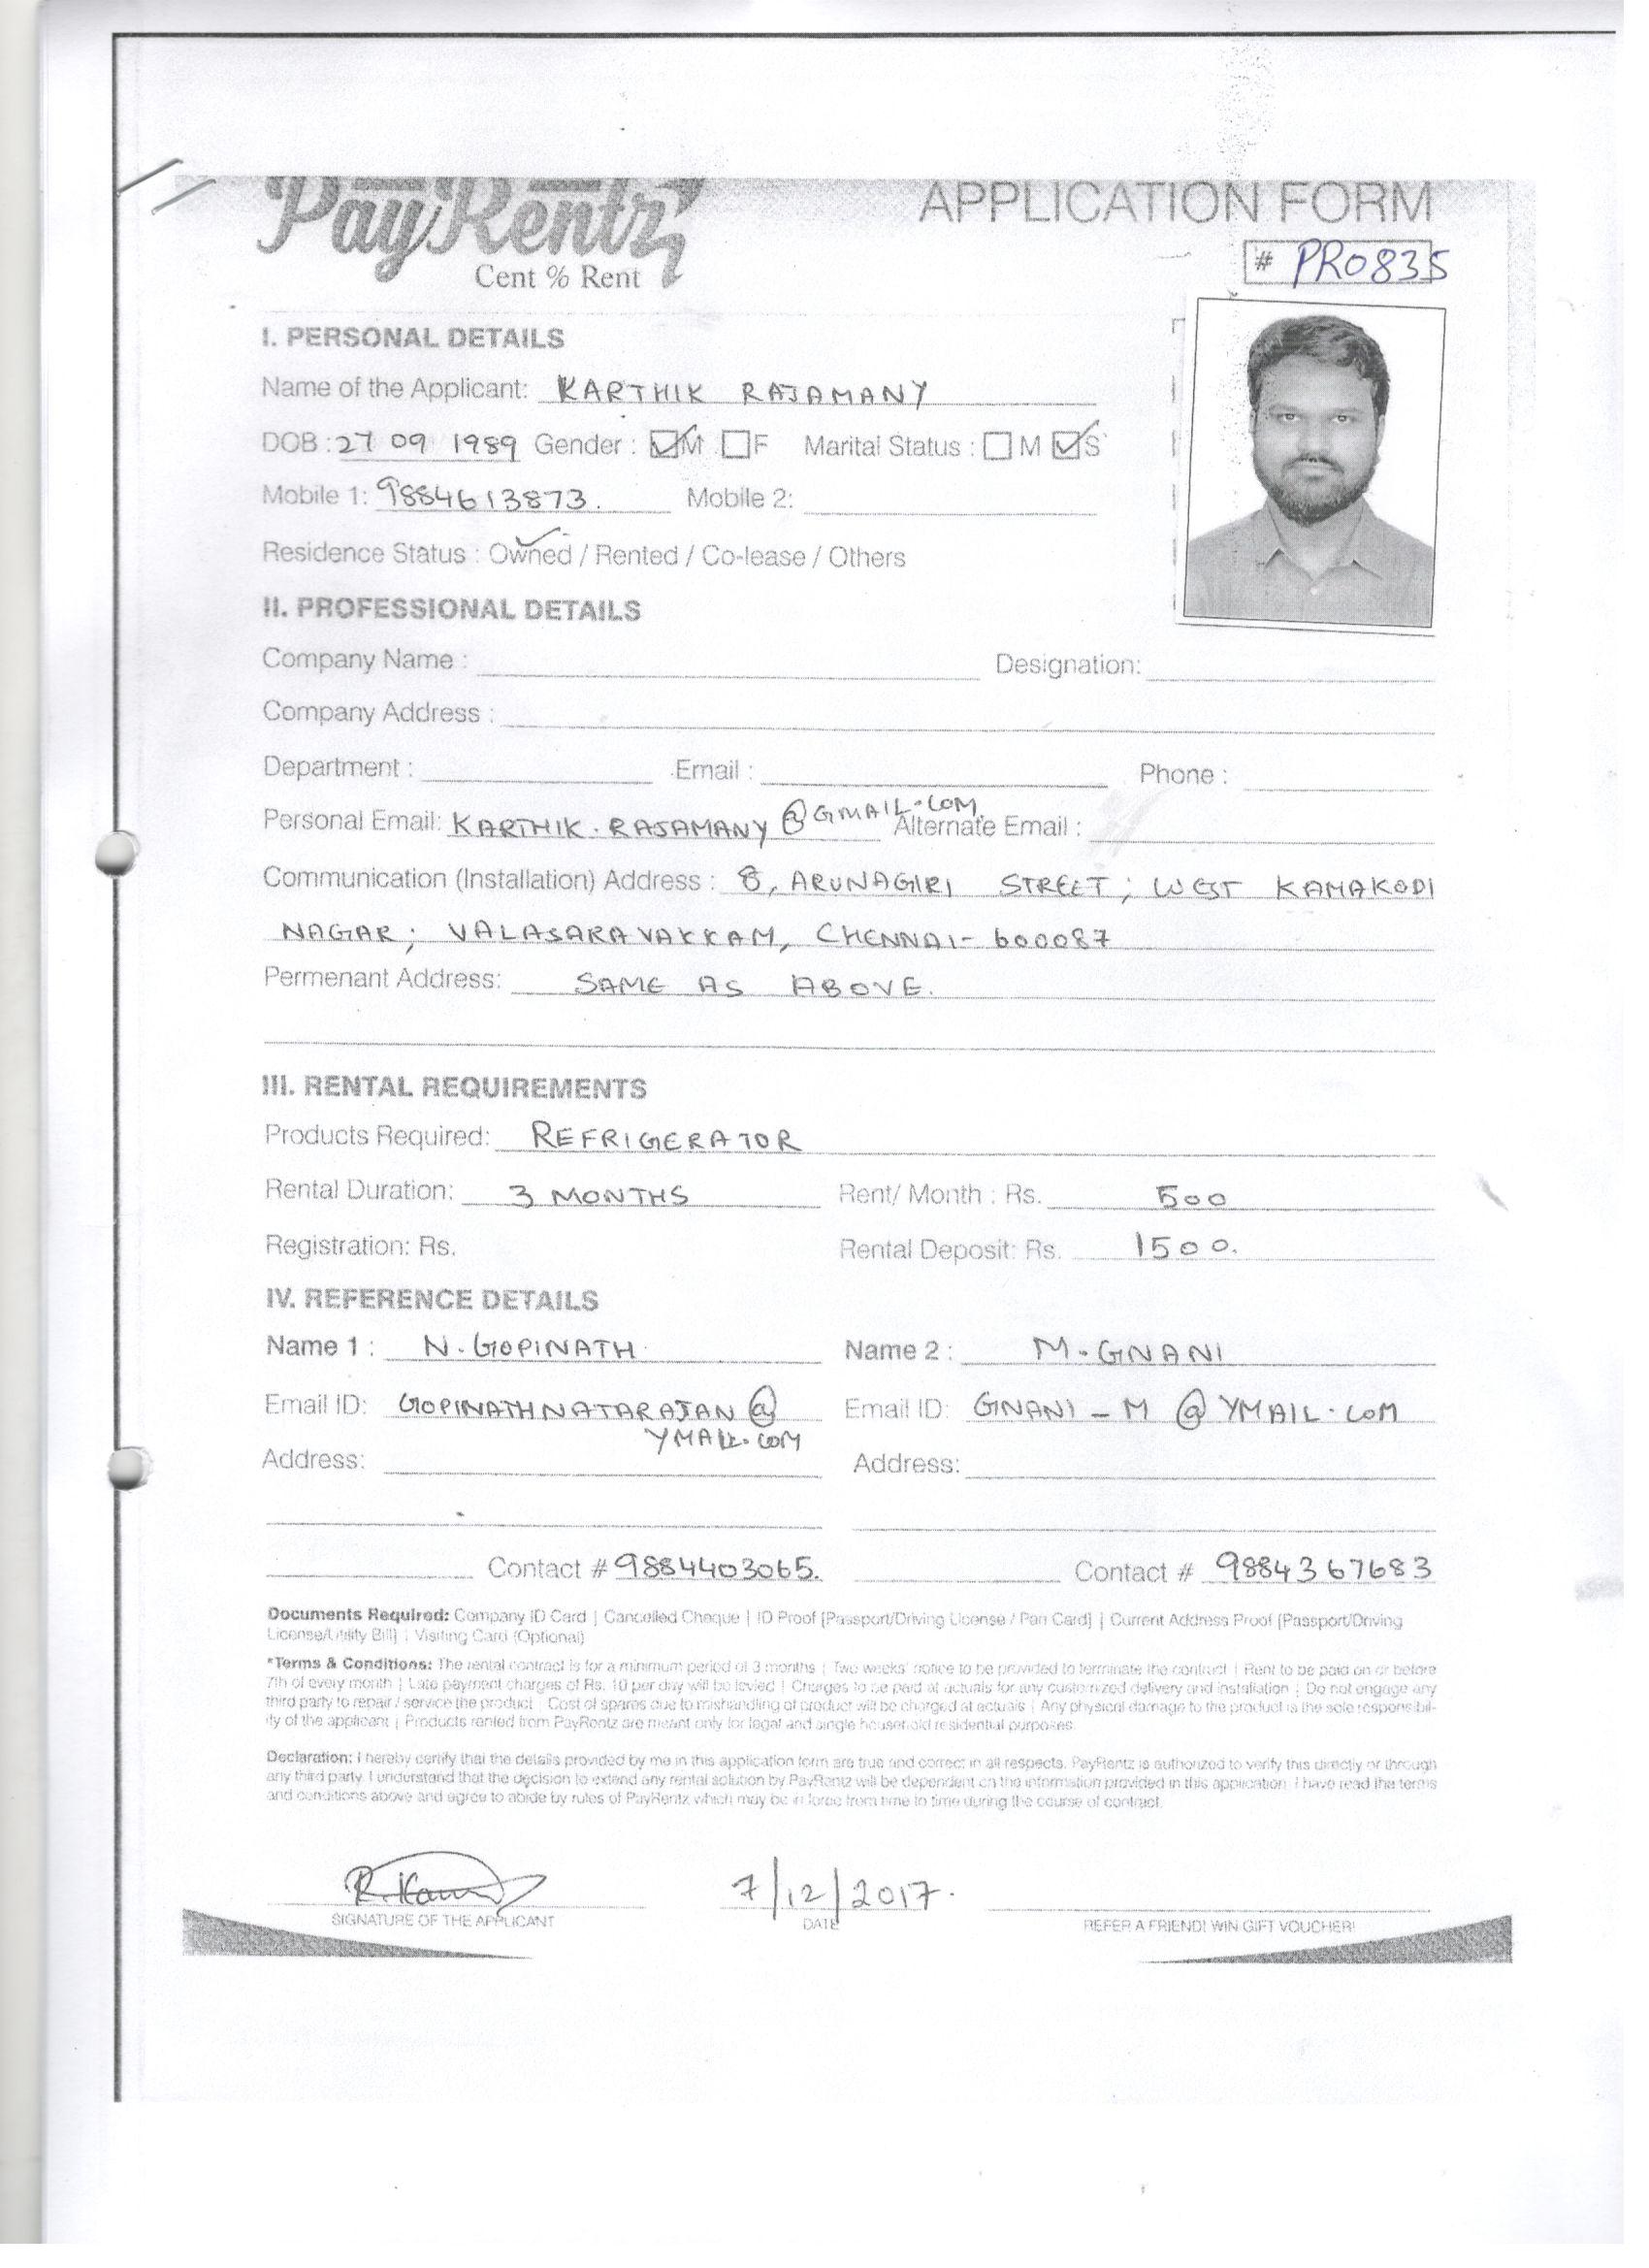 PayRentz
APPLICATION FORM
Cent % Rent
# PR0835
I. PERSONAL DETAILS
Name of the Applicant: KARTHIK RAJAMANY
DOB : 27 09 1989 Gender : M F Marital Status : M S
Mobile 1: 9884613873. Mobile 2:
Residence Status : Owned / Rented / Co-lease / Others
II. PROFESSIONAL DETAILS
Company Name : Designation:
Company Address :
Department : Email : Phone :
Personal Email: KARTHIK.RAJAMANY@GMAIL.COM Alternate Email :
Communication (Installation) Address : 8, ARUNAGIRI STREET; WEST KAMAKODI
NAGAR; VALASARAVAKKAM, CHENNAI- 600087
Permenant Address: SAME AS ABOVE.
III. RENTAL REQUIREMENTS
Products Required: REFRIGERATOR
Rental Duration: 3 MONTHS Rent/ Month : Rs. 500
Registration: Rs. Rental Deposit: Rs. 1500.
IV. REFERENCE DETAILS
Name 1 : N. GOPINATH Name 2 : M. GNANI
Email ID: GOPINATHNATARAJAN@ Email ID: GNANI_M@YMAIL.COM
YMAIL.COM
Address: Address:
Contact # 9884403065. Contact # 9884367683
Documents Required: Company ID Card | Cancelled Cheque | ID Proof [Passport/Driving License / Pan Card] | Current Address Proof [Passport/Driving
License/Utility Bill] | Visiting Card (Optional)
*Terms & Conditions: The rental contract is for a minimum period of 3 months | Two weeks' notice to be provided to terminate the contract | Rent to be paid on or before
7th of every month | Late payment charges of Rs. 10 per day will be levied | Charges to be paid at actuals for any customized delivery and installation | Do not engage any
third party to repair / service the product | Cost of spares due to mishandling of product will be charged at actuals | Any physical damage to the product is the sole responsibil-
ity of the applicant | Products rented from PayRentz are meant only for legal and single household residential purposes.
Declaration: I hereby certify that the details provided by me in this application form are true and correct in all respects. PayRentz is authorized to verify this directly or through
any third party. I understand that the decision to extend any rental solution by PayRentz will be dependent on the information provided in this application. I have read the terms
and conditions above and agree to abide by rules of PayRentz which may be in force from time to time during the course of contract.
7/12/2017.
SIGNATURE OF THE APPLICANT DATE REFER A FRIEND! WIN GIFT VOUCHER!